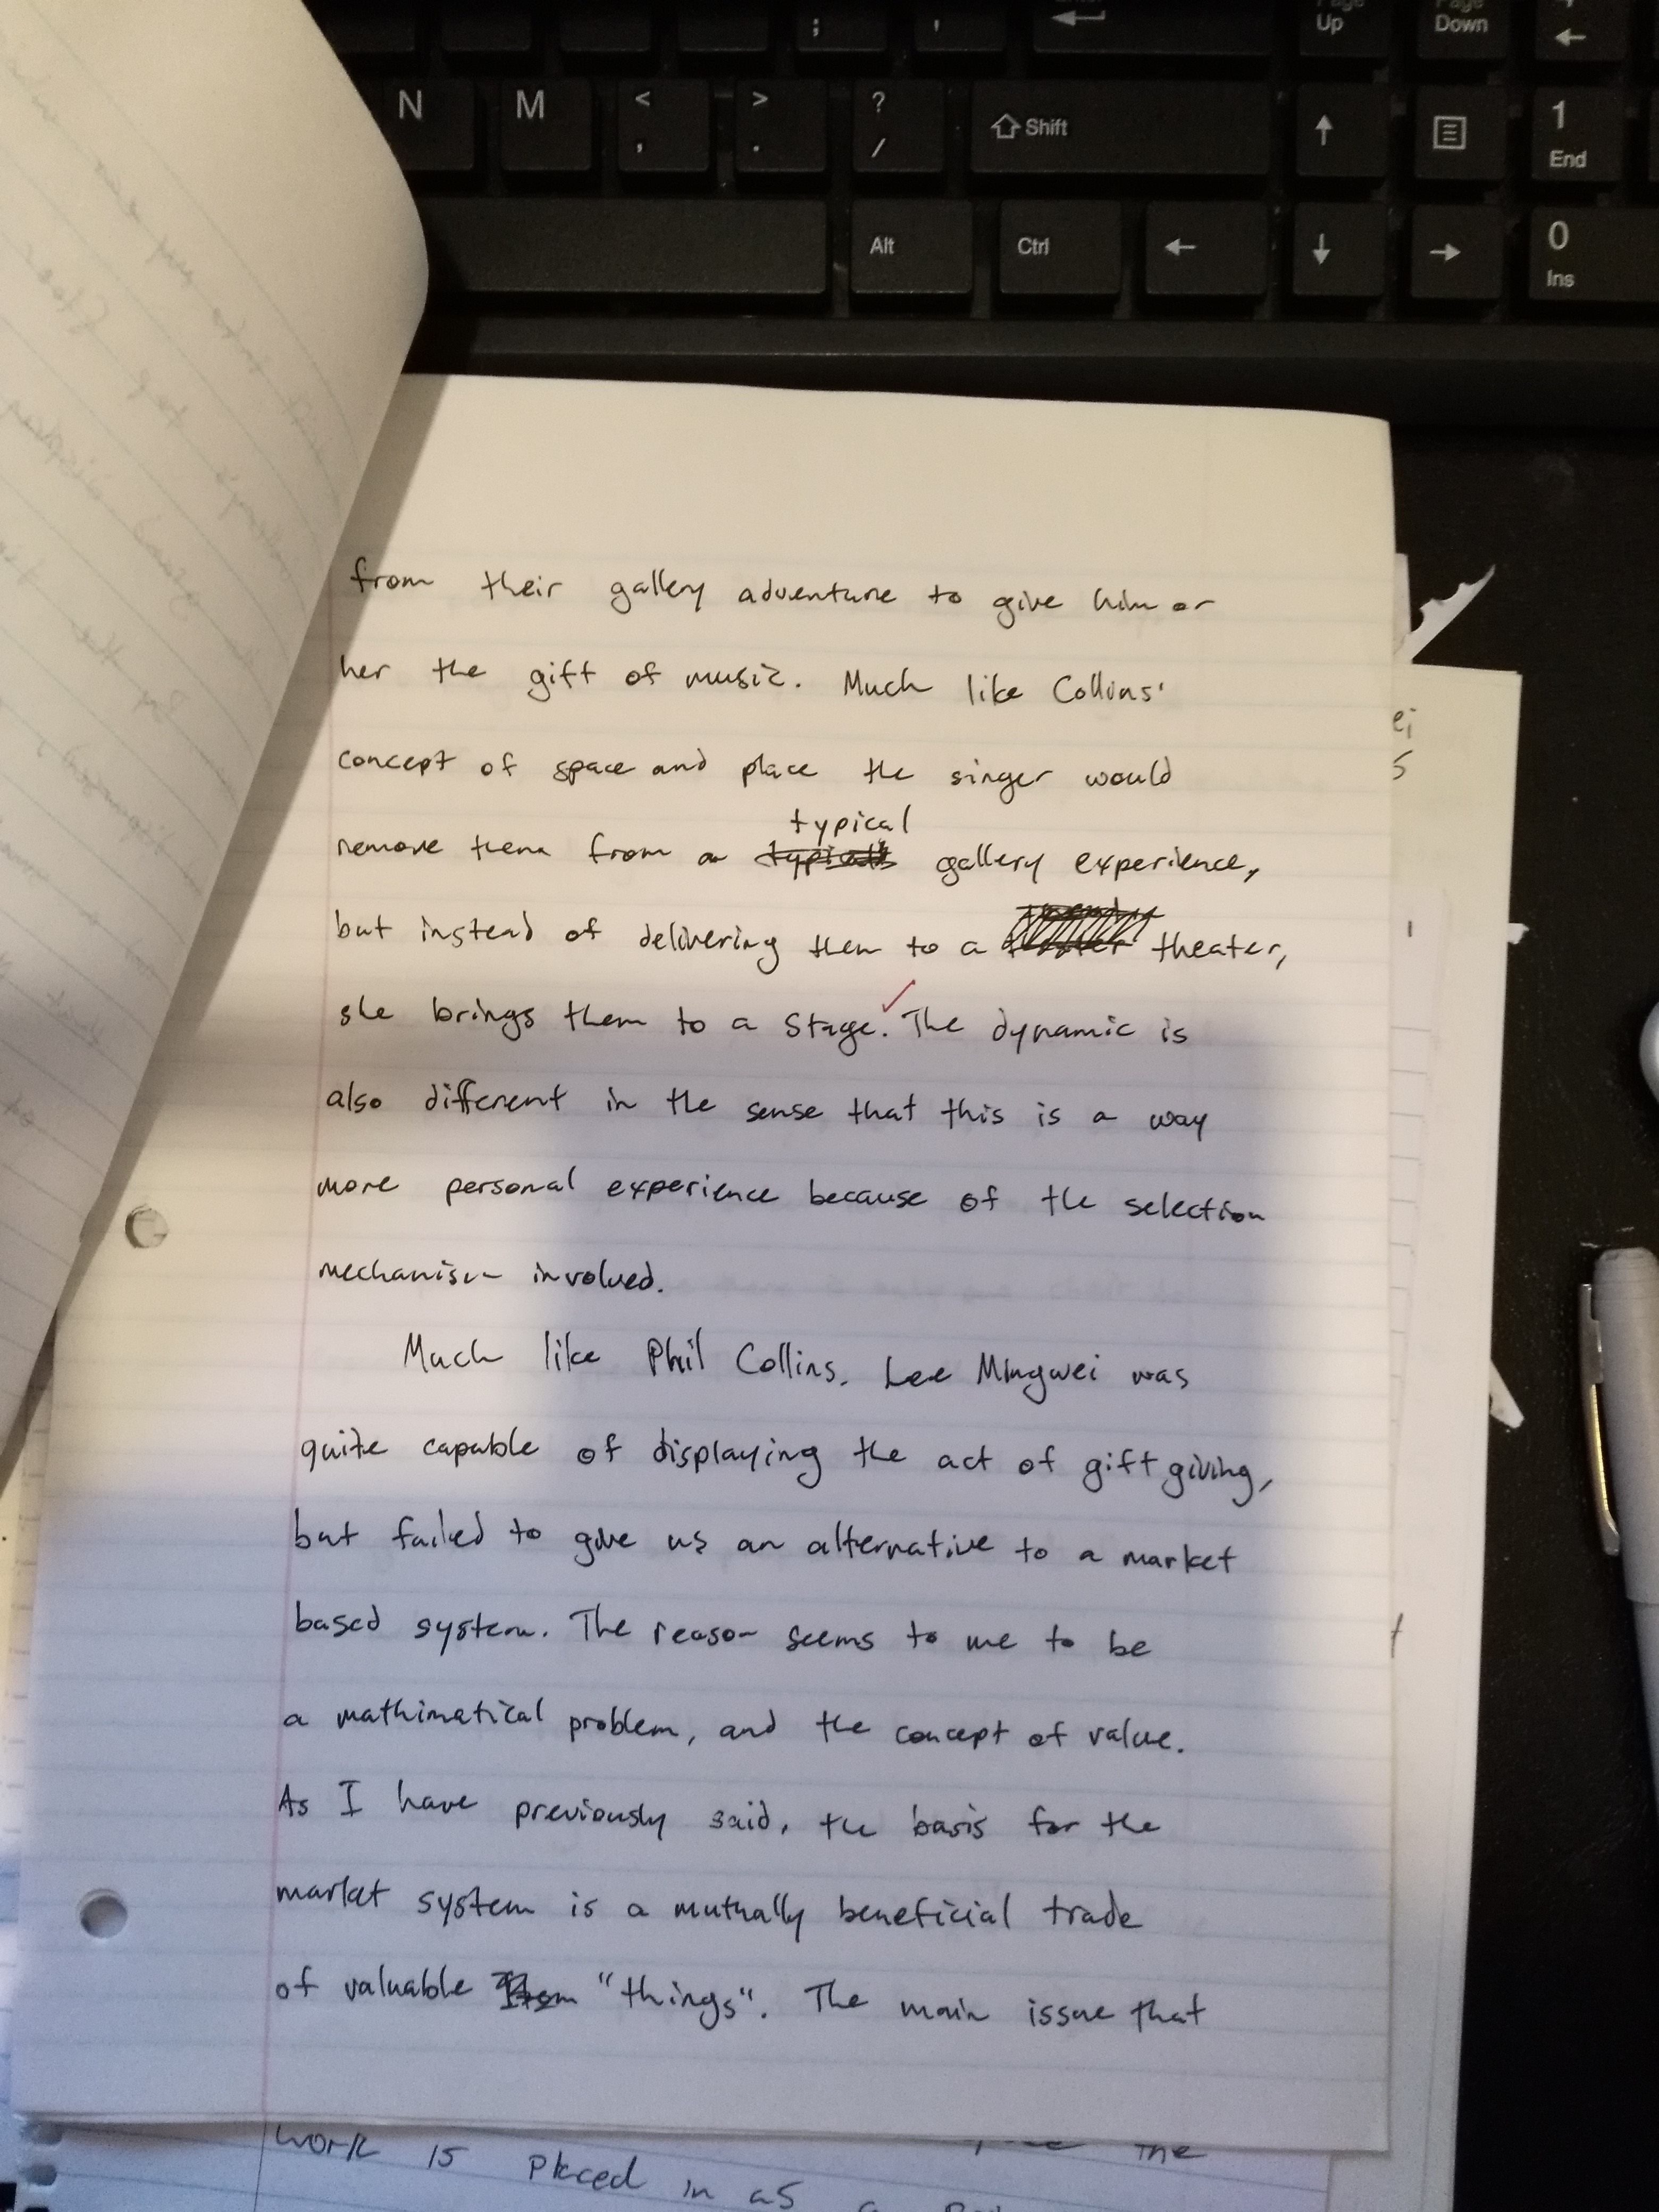 ; '
Page Up Page Down ←
N M < , > . ? / Shift ↑ 1 End
Alt Ctrl ← ↓ → 0 Ins
from their gallery adventure to give him or
her the gift of music. Much like Collins'
concept of space and place the singer would
typical
remove them from a gallery experience,
but instead of delivering them to a theater,
she brings them to a Stage. The dynamic is
also different in the sense that this is a way
more personal experience because of the selection
mechanism involved.
Much like Phil Collins, Lee Mingwei was
quite capable of displaying the act of gift giving,
but failed to give us an alternative to a market
based system. The reason seems to me to be
a mathimatical problem, and the concept of value.
As I have previously said, the basis for the
market system is a mutually beneficial trade
of valuable "things". The main issue that
work is placed in as a the